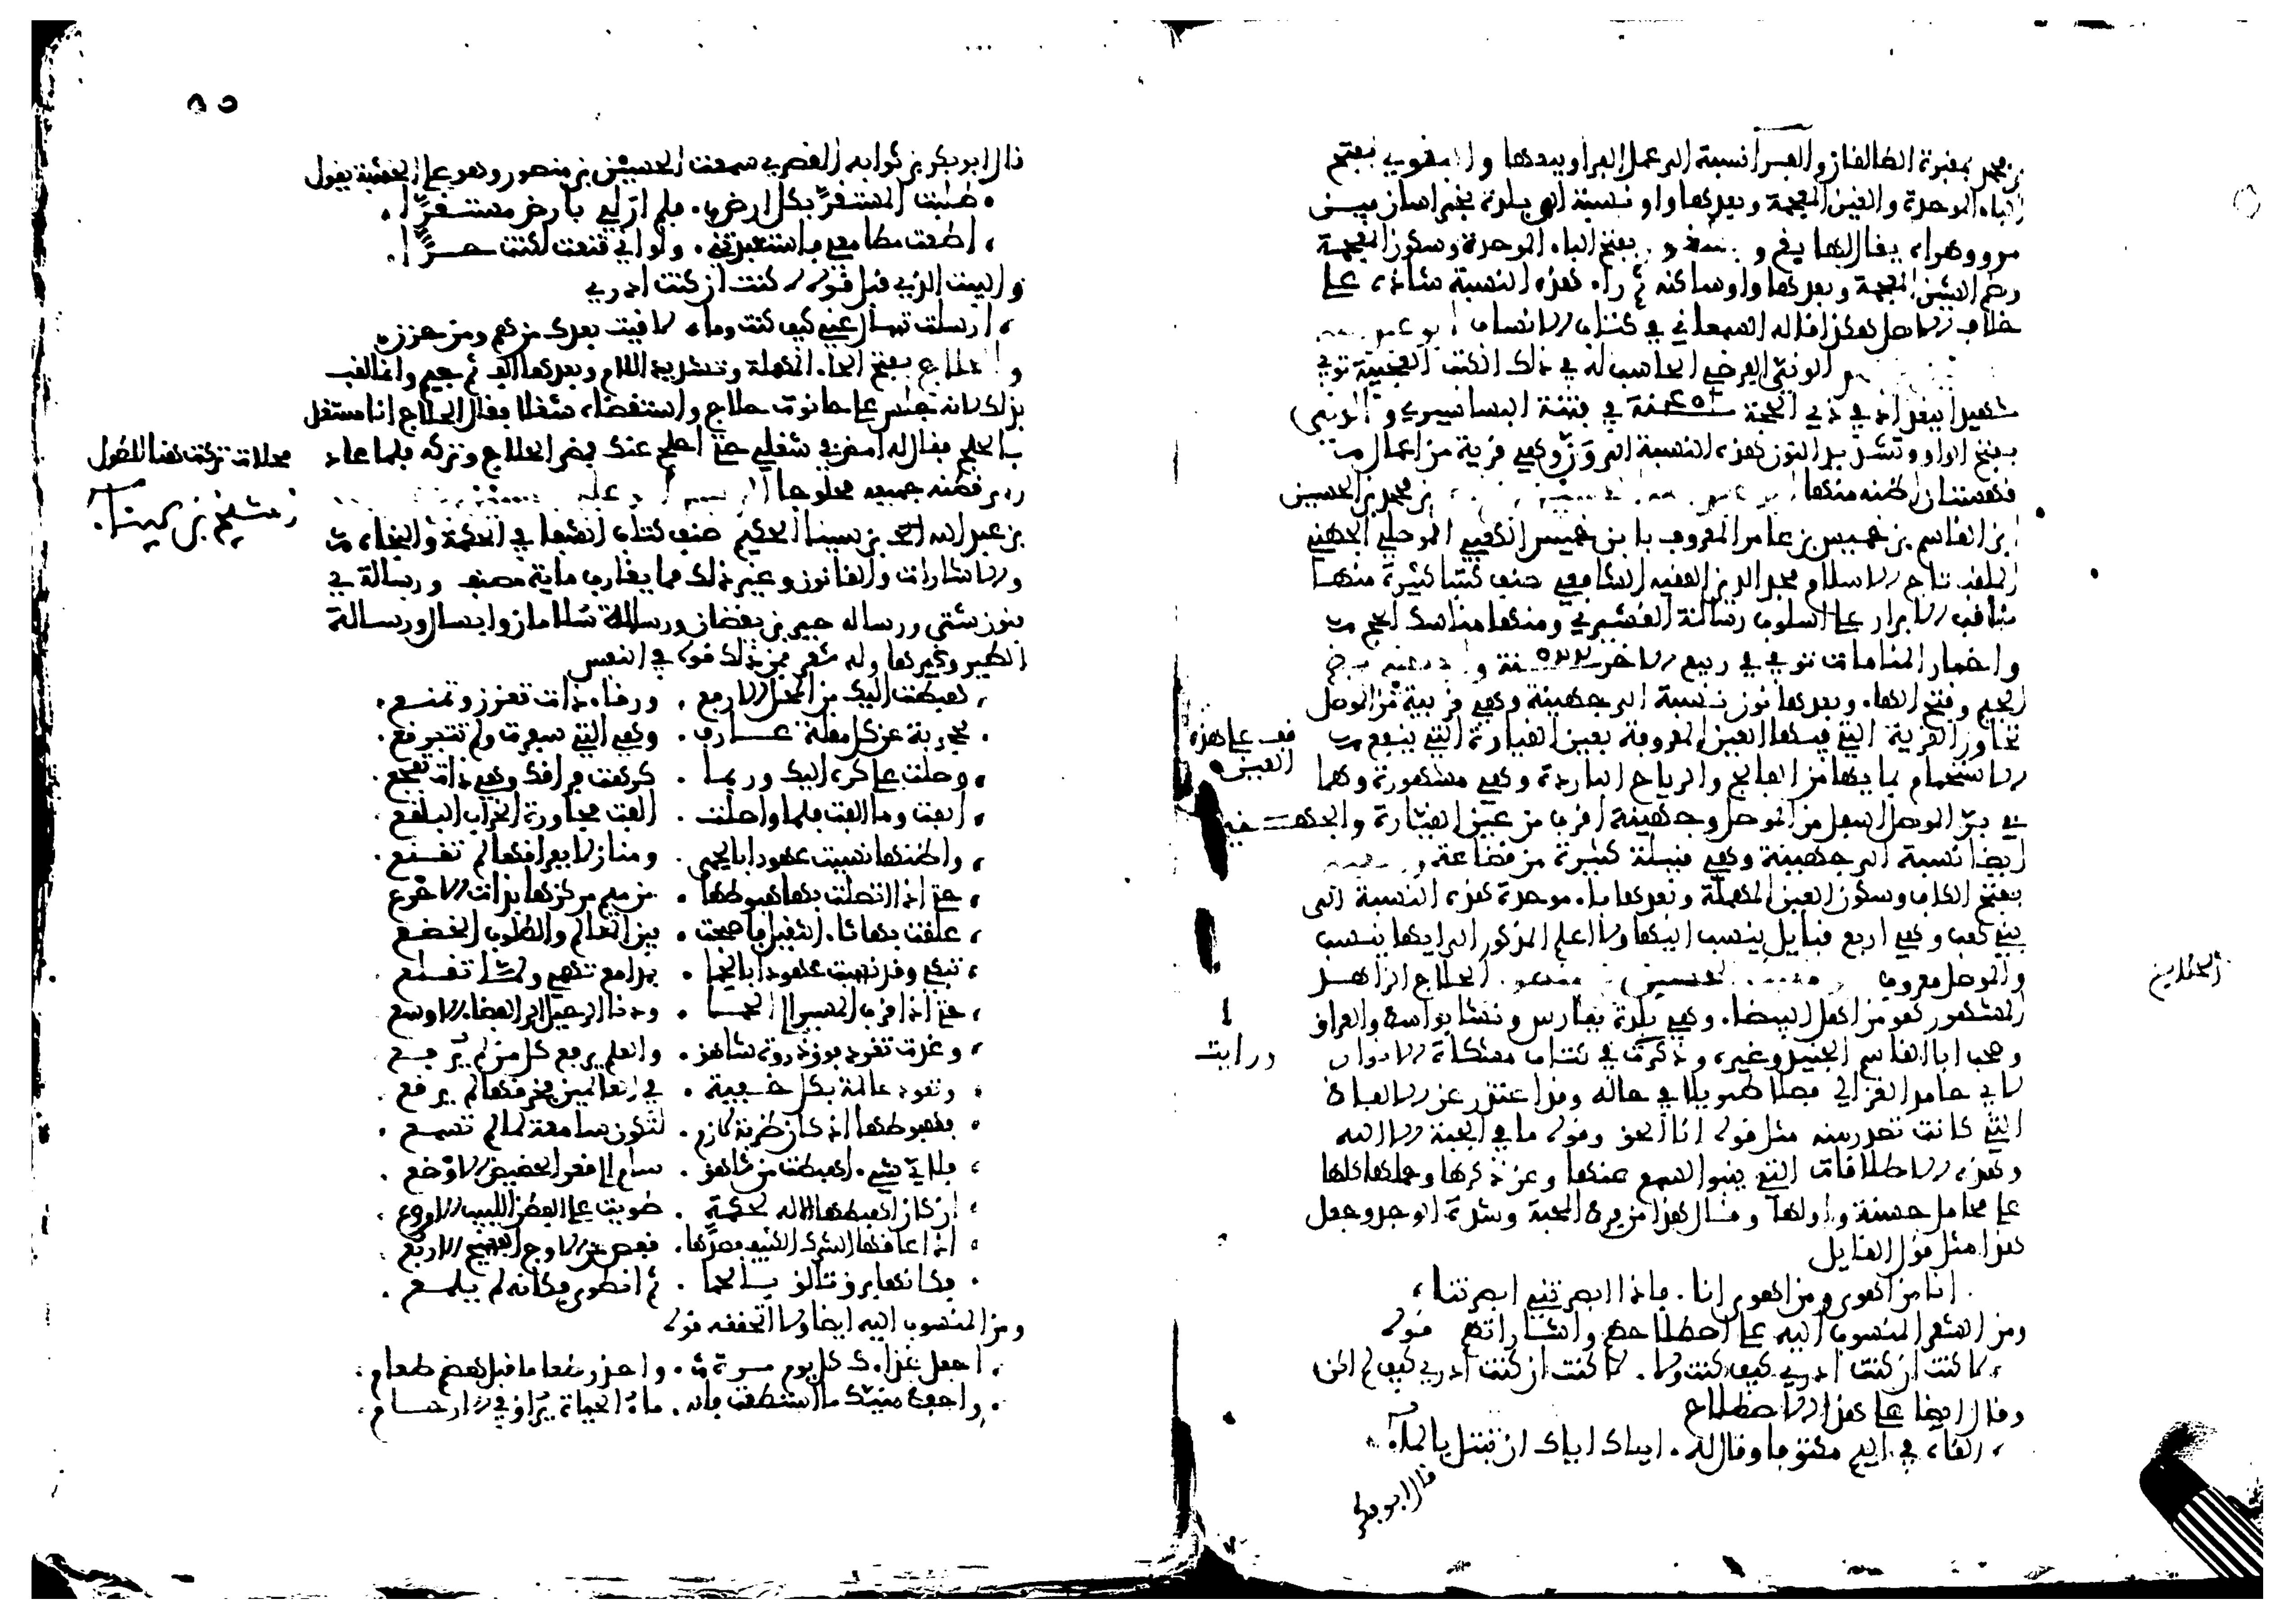 بن محمد بمقبرة الطالقان والفرا نسبة الى عمل الفرا وبيعها والبغوي بفتح
الباء الموحدة والغين المعجمة وبعدها واو نسبة الى بلدة بخراسان بين
مرو وهراه يقال لها بغ و بغشور بفتح الباء الموحدة وسكون المعجمة
وضم الشين المعجمة وبعدها واو ساكنه ثم راء هذه النسبة شاذة على
خلاف الاصل هكذا قاله السمعاني في كتاب الانساب ابو عبد
الوني الفرضي الحاسب له في ذلك الكتب العجيبة توفي
شهيدا ببغداد في ذي الحجة سنة في فتنة البساسيري والوني
بفتح الواو وتشديد النون هذه النسبة الى ون وهي قرية من اعمال
قهستان اظنه منها بن محمد بن الحسين
ابن القاسم بن خميس بن عامر المعروف بابن خميس الكعبي الموصلي الجهني
الملقب تاج الاسلام مجد الدين الفقيه الشافعي صنف كتبا كثيرة منها
مناقب الابرار على اسلوب رسالة القشيري ومنها مناسك الحج
واخبار المنامات توفي في ربيع الاخر سنة
الجيم وفتح الهاء وبعدها نون نسبة الى جهينة وهي قريبة من الموصل
تجاور القرية التي فيها العين المعروفة بعين القيارة التي ينفع
الاستحمام بمايها من الفالج والرياح الباردة وهي مشهورة وهما
في بر الموصل اسفل من الموصل وجهينة اقرب من عين القيارة والجهني
ايضا نسبة الى جهينة وهي قبيلة كبيرة من قضاعة
بفتح الكاف وسكون العين المهملة وبعدها باء موحدة هذه النسبة الى
بني كعب وهي اربع قبايل ينسب اليها ولا اعلم المذكور الى ايها ينسب
والموصل معروف الحسين بن منصور الحلاج الزاهد
المشهور هو من اهل البيضا وهي بلدة بفارس ونشا بواسط والعراق
وصحب ابا القاسم الجنيد وغيره وذكرت في كتاب مشكاة الانوار
لابي حامد الغزالي فصلا طويلا في حاله وقد اعتذر عن الالفاظ
التي كانت تصدر منه مثل قوله انا الحق وقوله ما في الجبة الا الله
وهذه الاطلاقات التي ينبوا السمع عنها وعن ذكرها وحملها كلها
على محامل حسنة واولها وقال هذا من فرط المحبة وشدة الوجد وجعل
هذا مثل قول القايل
انا من اهوى ومن اهوى انا . فاذا ابصرتني ابصرتنا
ومن الشعر المنسوب اليه على اصطلاحهم واشاراتهم قوله
لا كنت ان كنت ادري كيف كنت ولا . لا كنت ان كنت ادري كيف لم اكن
وقال ايضا على هذا الاصطلاح
القاه في اليم مكتوفا وقال له . اياك اياك ان تبتل بالماء
قال ابو بكر
قف على هذه
العين
ورايت
الحلاج
٨٥
قال ابو بكر بن ثوابه القصري سمعت الحسين بن منصور وهو على الخشبة يقول
طلبت المستقر بكل ارض . فلم ار لي بارض مستقرا
اطعت مطامعي فاستعبدتني . ولو اني قنعت لكنت حرا
والبيت الذي قبل قوله لا كنت ان كنت ادري
ارسلت تسال عني كيف كنت وما . لاقيت بعدك من هم ومن حزن
والحلاج بفتح الحاء المهملة وتشديد اللام وبعدها الف ثم جيم وانما لقب
بذلك لانه جلس على حانوت حلاج واستقضاه شغلا فقال الحلاج انا مشتغل
بالحلج فقال له امض في شغلي حتى احلج عنك فمضى الحلاج وتركه فلما عاد
راى قطنه جميعه محلوجا
بن عبد الله بن سينا الحكيم صنف كتاب الشفا في الحكمة والنجاة
والاشارات والقانون وغير ذلك مما يقارب ماية مصنف ورسالة في
فنون شتى ورساله حي بن يقظان ورسالة سلامان وابسال ورسالة
الطير وغيرها وله شعر فمن ذلك قوله في النفس
هبطت اليك من المحل الارفع . ورقاء ذات تعزز وتمنع
محجوبة عن كل مقلة عارف . وهي التي سفرت ولم تتبرقع
وصلت على كره اليك وربما . كرهت فراقك وهي ذات تفجع
انفت وما الفت فلما واصلت . الفت مجاورة الخراب البلقع
واظنها نسيت عهودا بالحمى . ومنازلا بفراقها لم تقنع
حتى اذا اتصلت بهاء هبوطها . من ميم مركزها بذات الاجرع
علقت بها ثاء الثقيل فاصبحت . بين المعالم والطلول الخضع
تبكي وقد نسيت عهودا بالحما . بمدامع تهمي ولما تقلع
حتى اذا قرب المسير الى الحما . ودنا الرحيل الى الفضاء الاوسع
وغدت تغرد فوق ذروة شاهق . والعلم يرفع كل من لم يرفع
وتعود عالمة بكل خفية . في العالمين فخرقها لم يرقع
فهبوطها اذ كان ضربة لازم . لتكون سامعة لما لم تسمع
فلاي شيء اهبطت من شاهق . سام الى قعر الحضيض الاوضع
ان كان اهبطها الاله لحكمة . طويت على الفطن اللبيب الاروع
اذ عاقها الشرك الكثيف فصدها . قفص عن الاوج الفسيح الاربع
فكانها برق تالق بالحما . ثم انطوى فكانه لم يلمع
ومن المنسوب اليه ايضا ولا اتحققه قوله
اجعل غذاءك كل يوم مرة . واحذر طعاما قبل هضم طعام
واحفظ منيك ما استطعت فانه . ماء الحياة يراق في الارحام
محلات تركت هنا للطول
الشيخ بن سينا